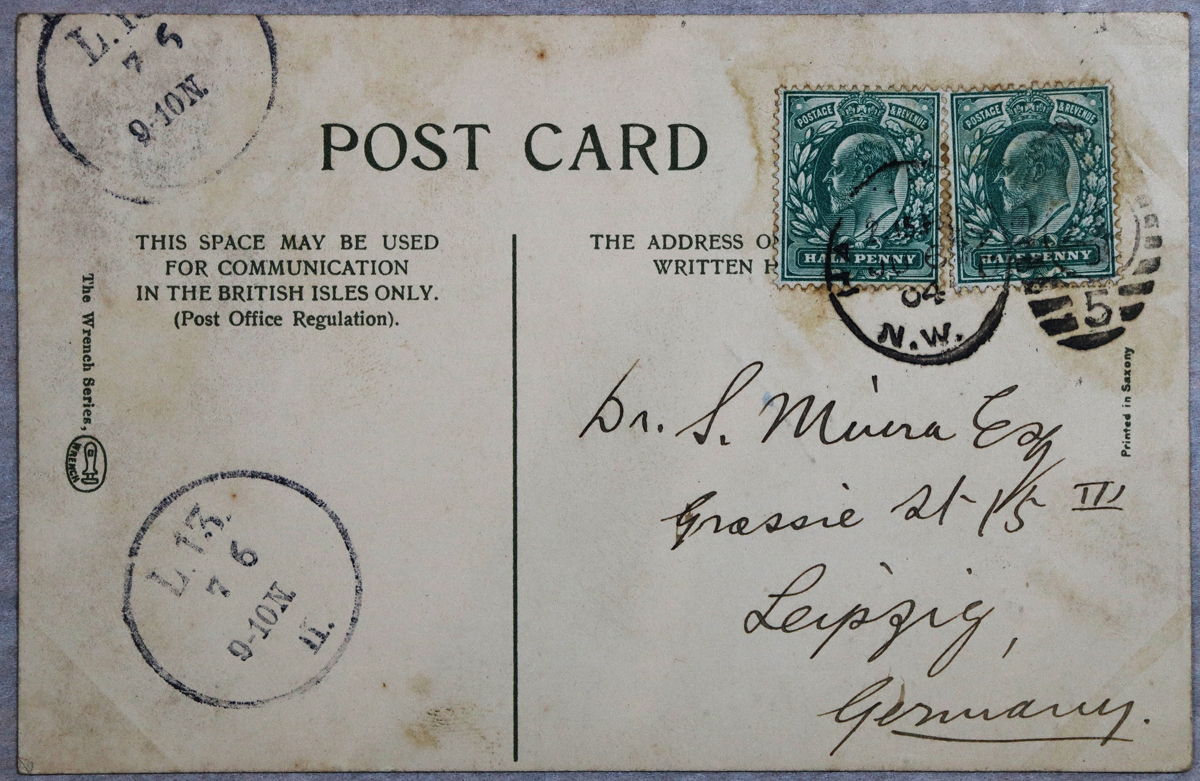 L.13.
7 5
9-10N
POST CARD
POSTAGE & REVENUE
HALF PENNY
POSTAGE & REVENUE
HALF PENNY
THIS SPACE MAY BE USED
FOR COMMUNICATION
IN THE BRITISH ISLES ONLY.
(Post Office Regulation).
THE ADDRESS
WRITTEN
04
N.W.
5
The Wrench Series,
WRENCH
Printed in Saxony
Dr. S. Miura Esq
Grassie St 15 III
Leipzig,
Germany.
L.13.
7 6
9-10N
11.